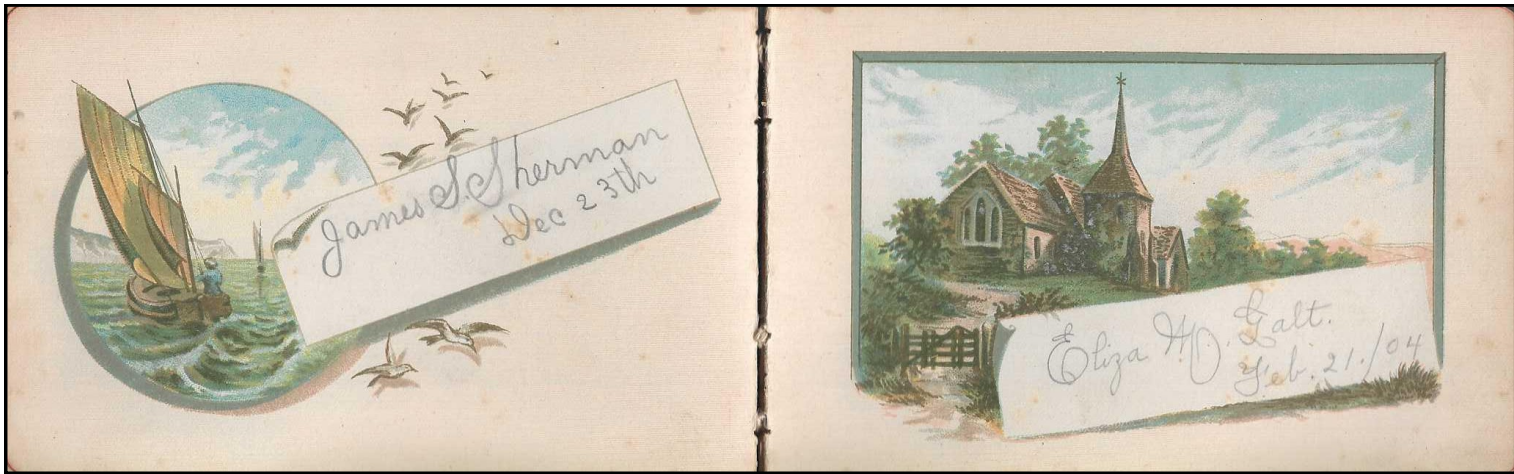 James S. Sherman
Dec 23th
Eliza M. Galt.
Feb. 21./04